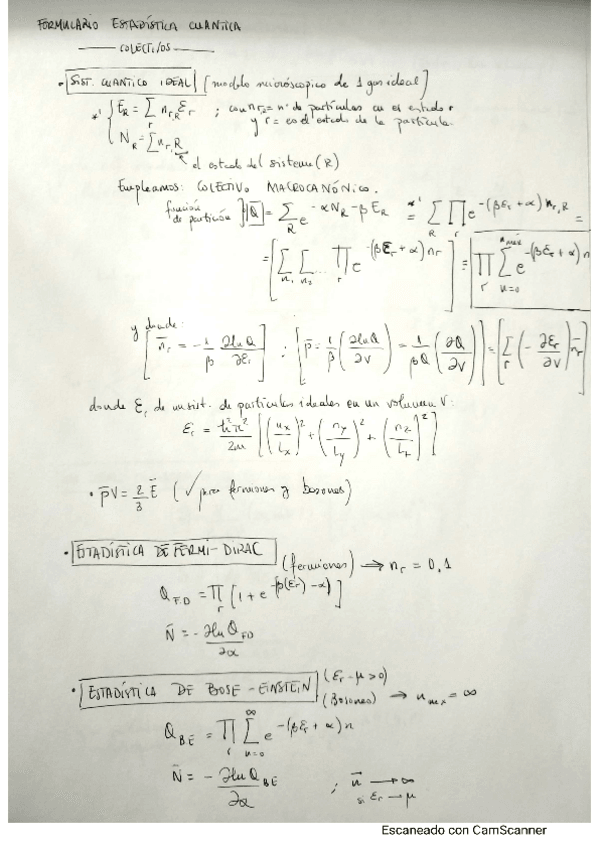 FORMULARIO ESTADÍSTICA CUANTICA
COLECTIVOS
· SIST. CUANTICO IDEAL (modelo microscópico de 1 gas ideal)
*' { E_R = Σ_r n_{r,R} ε_r ; con n_r = nº de partículas en el estado r
N_R = Σ n_{r,R} y r = es el estado de la partícula.
el estado del sistema (R)
Empleamos: COLECTIVO MACROCANÓNICO.
función de partición } Q = Σ_R e^{-αN_R - βE_R} =^{*'} Σ_R Π_r e^{-(βε_r + α) n_{r,R}} =
= [ Σ_{n_1} Σ_{n_2} ... Π_r e^{-(βε_r + α) n_r} ] = Π_r Σ_{n=0}^{n_max} e^{-(βε_r + α) n}
y donde:
[ n̄_r = - 1/β ∂lnQ/∂ε_r ] ; [ p̄ = 1/β (∂lnQ/∂V) = 1/(βQ) (∂Q/∂V) ] = [ Σ_r (- ∂ε_r/∂V) n̄_r ]
donde ε_r de un sist. de partículas ideales en un volumen V:
ε_r = ħ²π²/2m [ (n_x/L_x)² + (n_y/L_y)² + (n_z/L_z)² ]
· p̄V = 2/3 Ē (✓ para fermiones y bosones)
· ESTADÍSTICA DE FERMI-DIRAC (fermiones) → n_r = 0,1
Q_{FD} = Π_r [1 + e^{-β(ε_r) - α}]
N̄ = - ∂lnQ_{FD}/∂α
· ESTADÍSTICA DE BOSE-EINSTEIN (ε_r - μ > 0) (Bosones) → n_max = ∞
Q_{BE} = Π_r Σ_{n=0}^{∞} e^{-(βε_r + α) n}
N̄ = - ∂lnQ_{BE}/∂α ; n̄ → ∞
si ε_r → μ
Escaneado con CamScanner